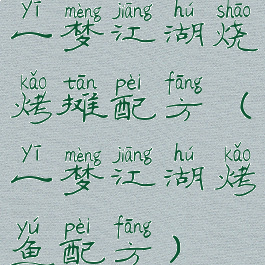 yī mèng jiāng hú shāo
一梦江湖烧
kǎo tān pèi fāng
烤摊配方（
yī mèng jiāng hú kǎo
一梦江湖烤
yú pèi fāng
鱼配方）